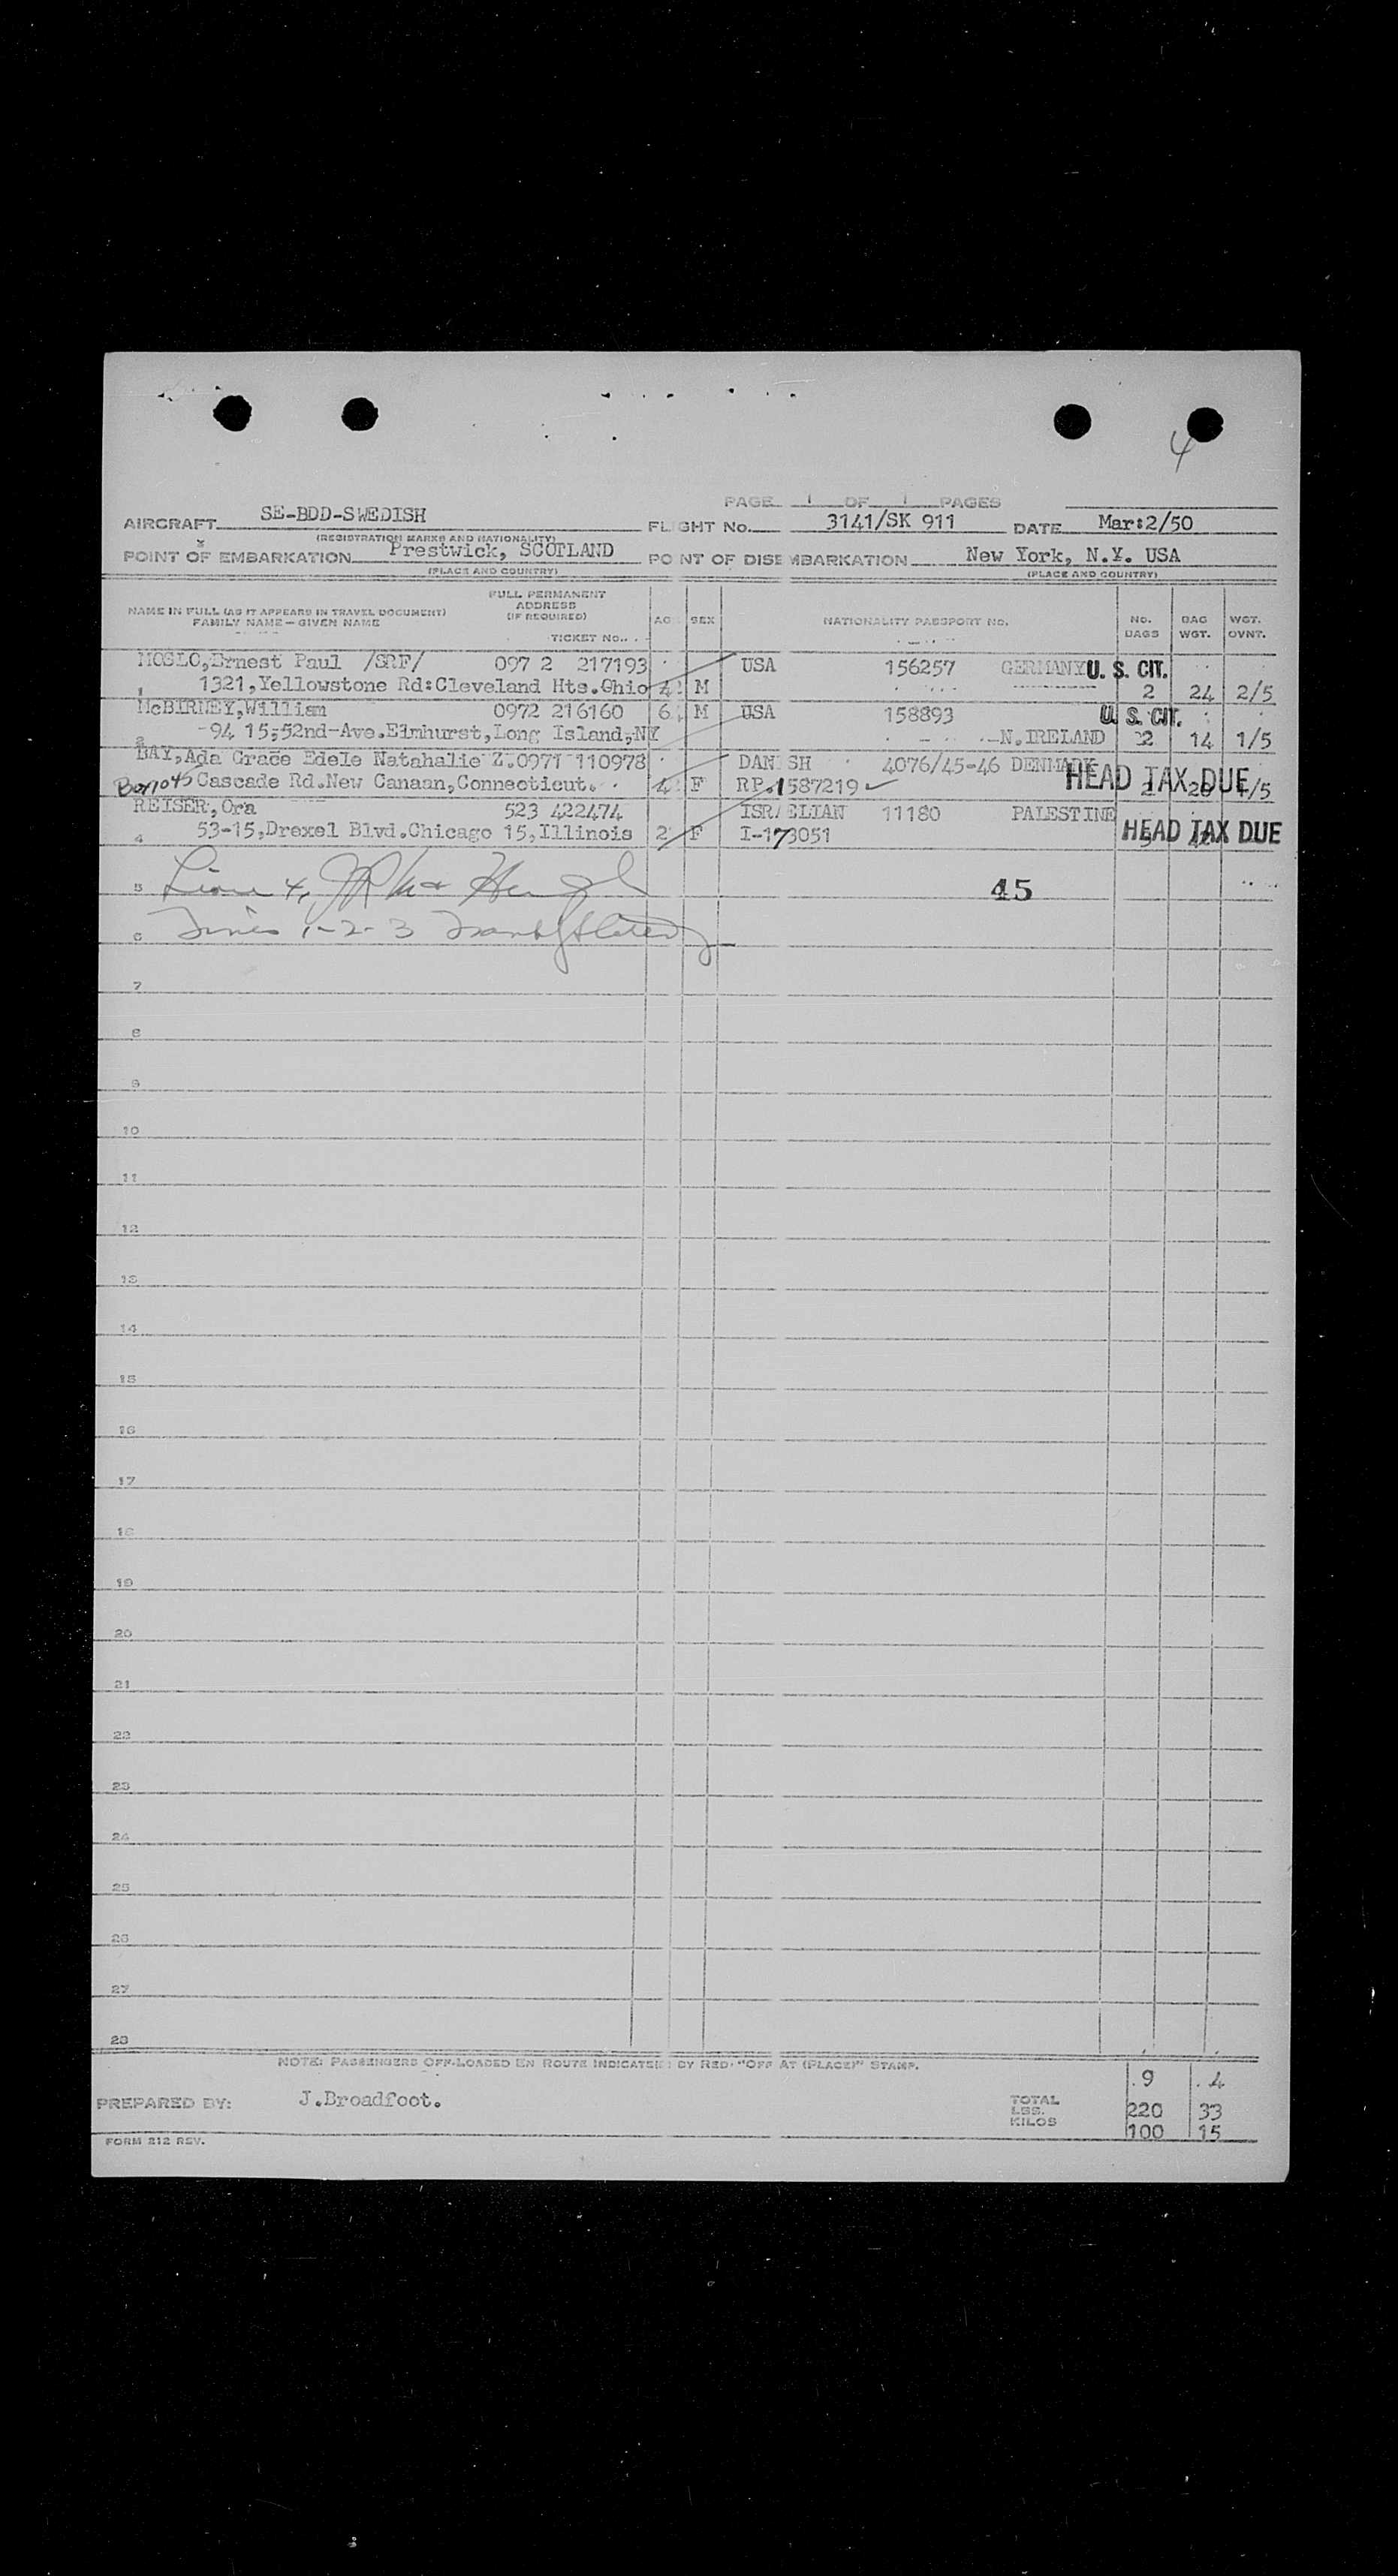 4
PAGE 1 OF 1 PAGES
AIRCRAFT SE-BDD-SWEDISH FLIGHT No. 3141/SK 911 DATE Mar:2/50
(REGISTRATION MARKS AND NATIONALITY)
POINT OF EMBARKATION Prestwick, SCOTLAND POINT OF DISEMBARKATION New York, N.Y. USA
(PLACE AND COUNTRY) (PLACE AND COUNTRY)
NAME IN FULL (AS IT APPEARS IN TRAVEL DOCUMENT) FAMILY NAME—GIVEN NAME FULL PERMANENT ADDRESS (IF REQUIRED) TICKET No. AG SEX NATIONALITY PASSPORT NO. No. BAGS BAG WGT. WGT. OVNT.
MOSLO,Ernest Paul /SRF/ 097 2 217193 USA 156257 GERMANY U. S. CIT.
1 1321,Yellowstone Rd:Cleveland Hts.Ohio 4 M 2 24 2/5
McBIRNEY,William 0972 216160 6 M USA 158893 U. S. CIT.
2 -94 15;52nd-Ave.Elmhurst,Long Island,NY N.IRELAND 2 14 1/5
BAY,Ada Grace Edele Natahalie Z.0971 110978 DANISH 4076/45-46 DENMARK HEAD TAX DUE
Cascade Rd.New Canaan,Connecticut. 4 F RP.1587219 1/5
REISER,Ora 523 422474 ISRAELIAN 11180 PALESTINE
4 53-15,Drexel Blvd.Chicago 15,Illinois 2 F I-173051 HEAD TAX DUE
5 45
6 Lines 1-2-3
7
8
9
10
11
12
13
14
15
16
17
18
19
20
21
22
23
24
25
26
27
28
NOTE: PASSENGERS OFF-LOADED EN ROUTE INDICATED BY RED "OFF AT (PLACE)" STAMP.
9 4
PREPARED BY: J.Broadfoot. TOTAL
LBS. 220 33
KILOS 100 15
FORM 212 REV.